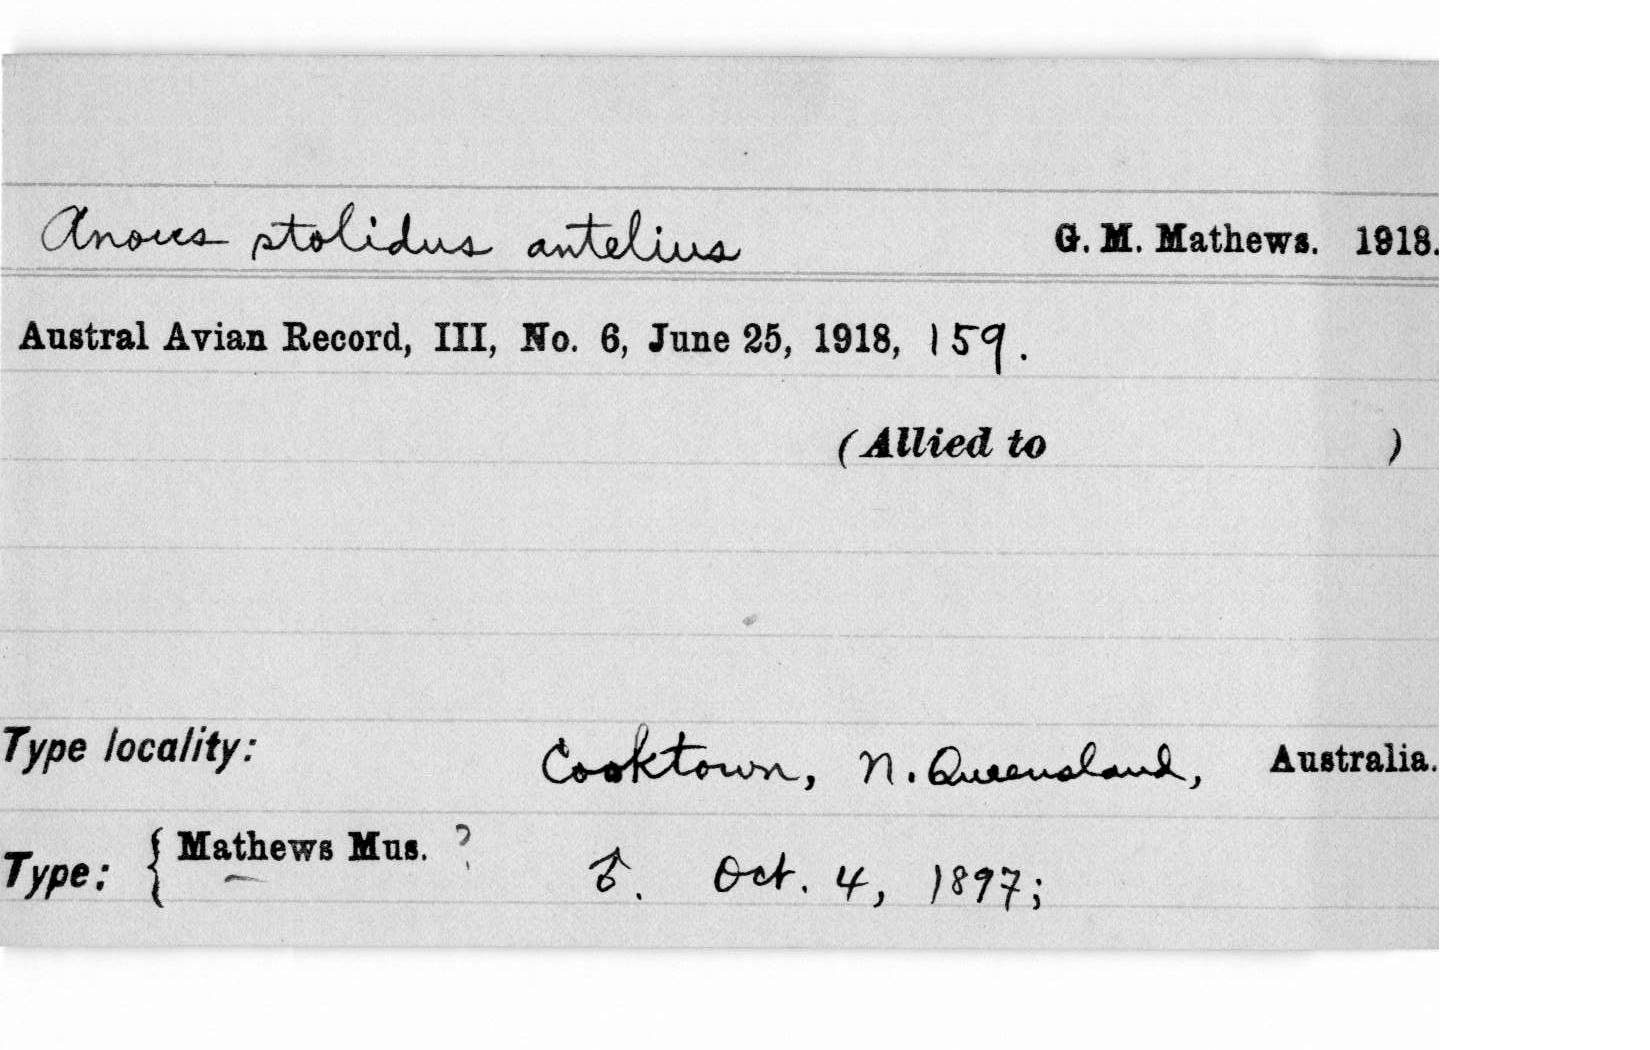 Anous stolidus antelius G. M. Mathews. 1918.
Austral Avian Record, III, No. 6, June 25, 1918, 159.
(Allied to )
Type locality: Cooktown, N. Queensland, Australia.
Type: { Mathews Mus. ?
♂. Oct. 4, 1897;